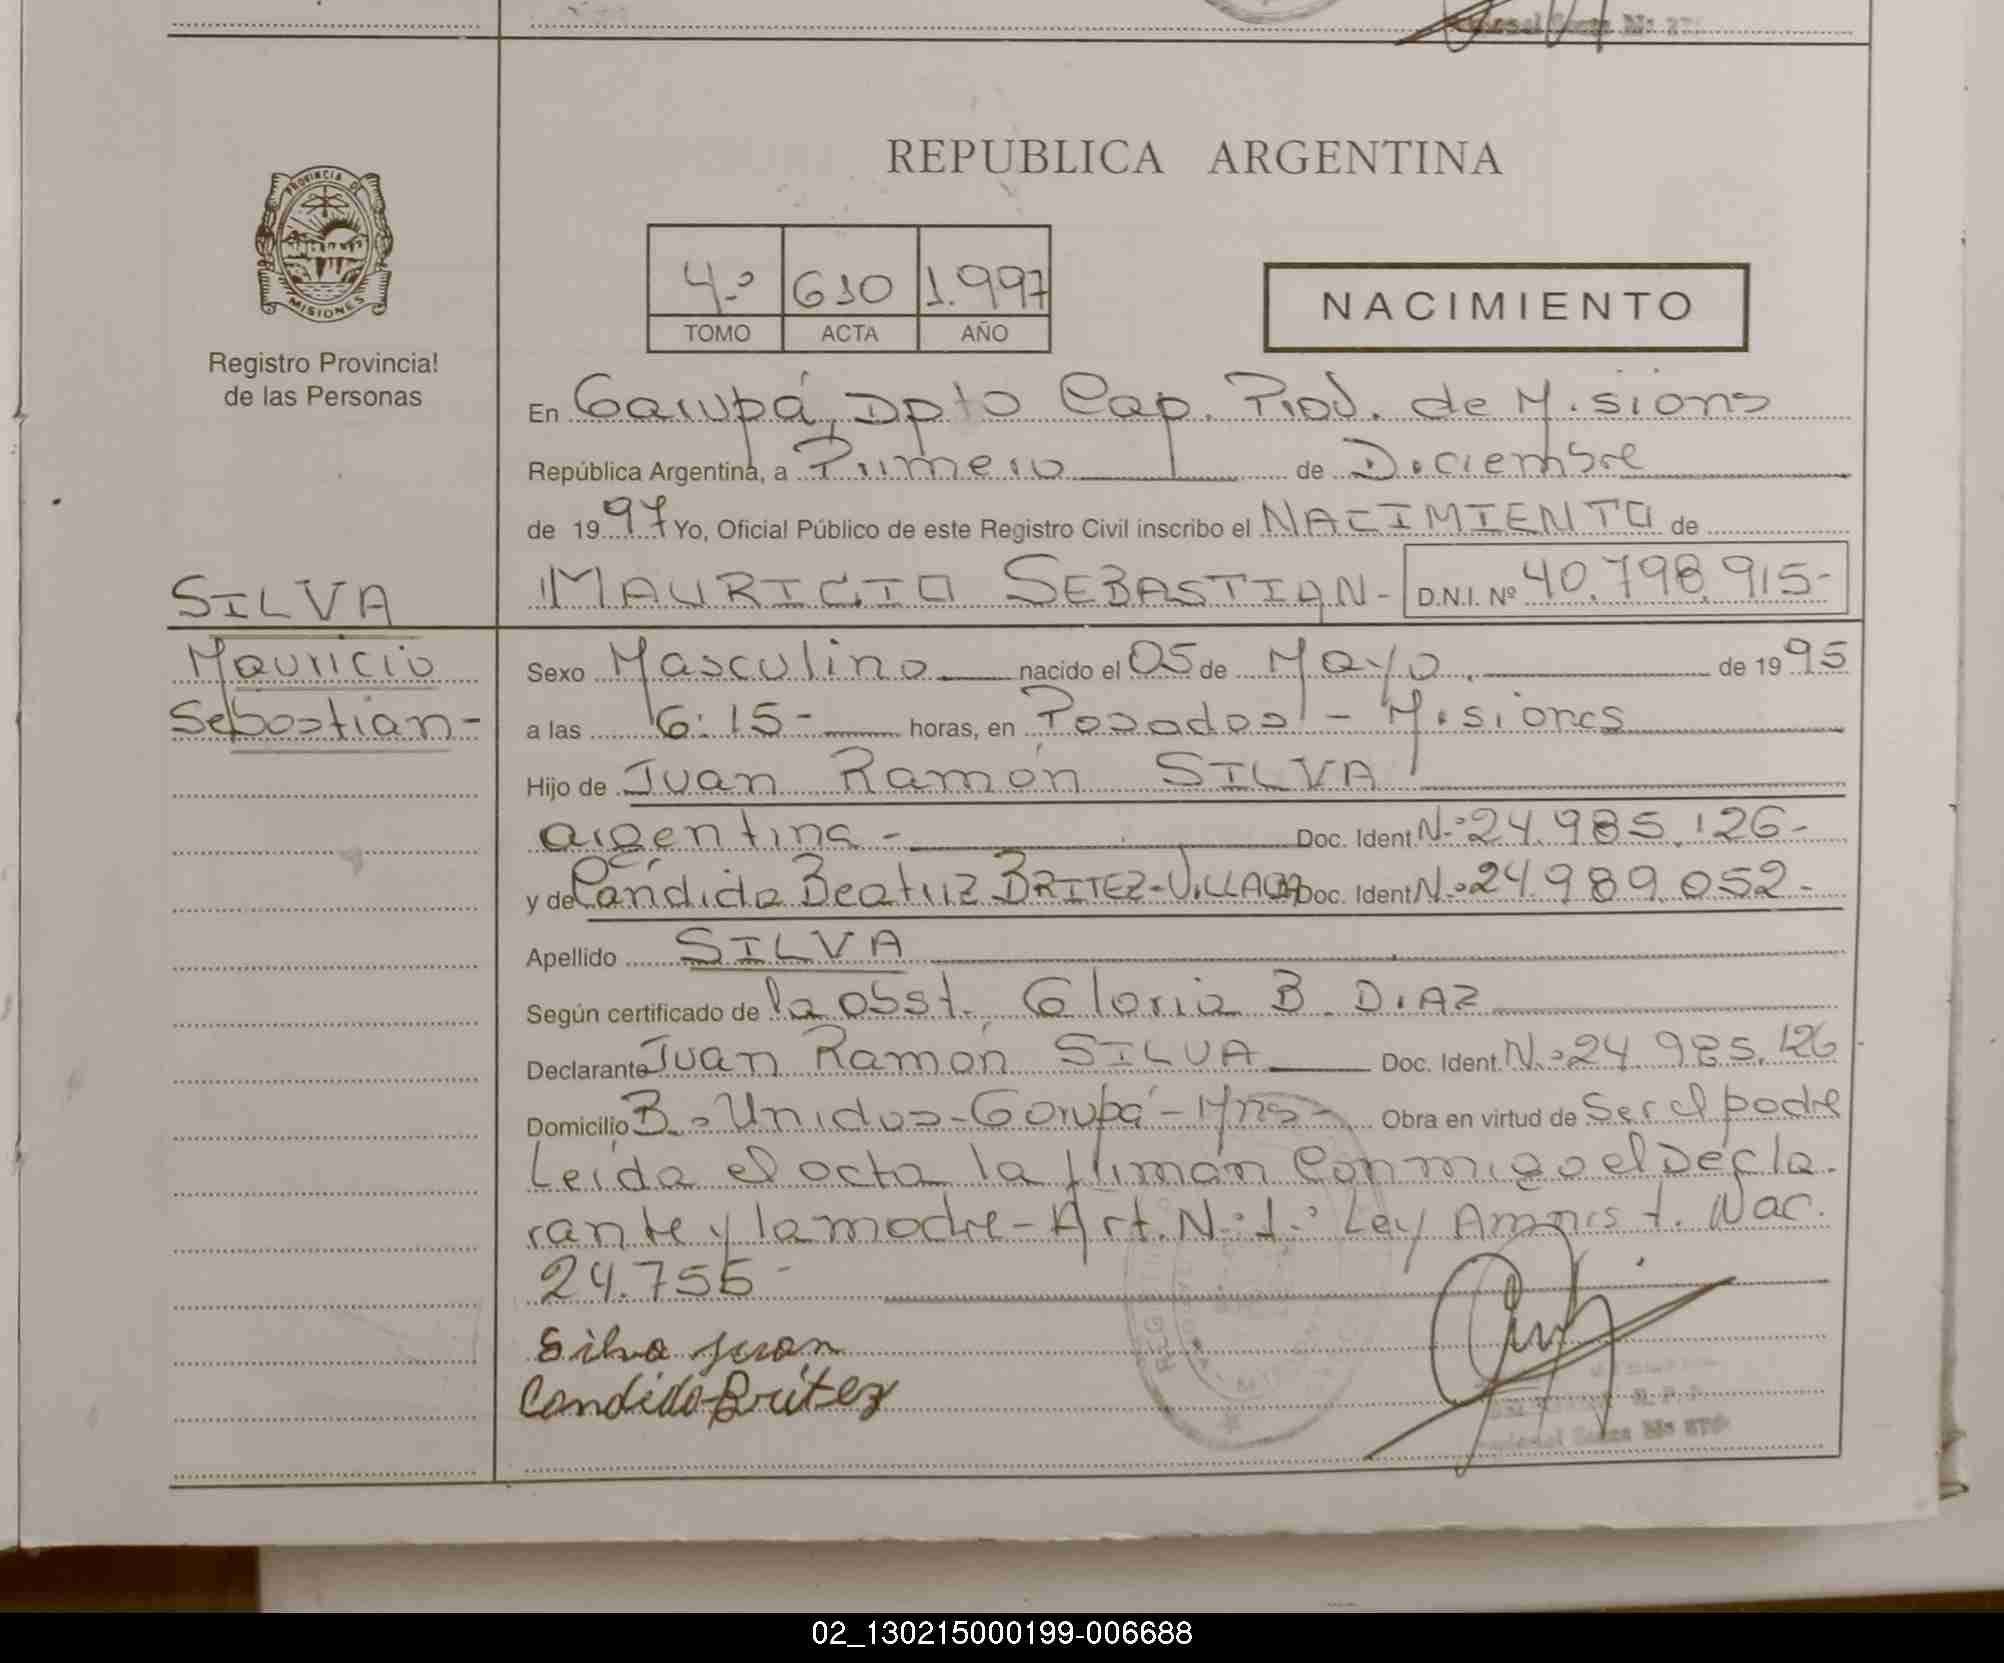 REPUBLICA ARGENTINA
PROVINCIA DE
MISIONES
Registro Provincial
de las Personas
4.º 610 1.997
TOMO ACTA AÑO
NACIMIENTO
En Garupá, Dpto Cap. Prov. de Misions
República Argentina, a Primero de Diciembre
de 1997 Yo, Oficial Público de este Registro Civil inscribo el NACIMIENTO de
SILVA MAURICIO SEBASTIAN- D.N.I. Nº 40.798.915-
Mauricio
Sebastian-
Sexo Masculino nacido el 05 de Mayo de 1995
a las 6:15- horas, en Posadas - Misiones
Hijo de Juan Ramón SILVA
argentina - Doc. Ident N.º 24.985.126-
y de Cándida Beatriz BRITEZ-VILLAGRA Doc. Ident N.º 24.989.052-
Apellido SILVA
Según certificado de la obst. Gloria B. DIAZ
Declarante Juan Ramón SILVA Doc. Ident. N.º 24.985.126
Domicilio B.º Unidos-Garupá-Mns- Obra en virtud de Ser el padre
Leída el acta la firman conmigo el Decla-
rante y la madre-Art. N.º 1.º Ley Amnist. Nac.
24.755-
Silva Juan
Candida Britez
02_130215000199-006688